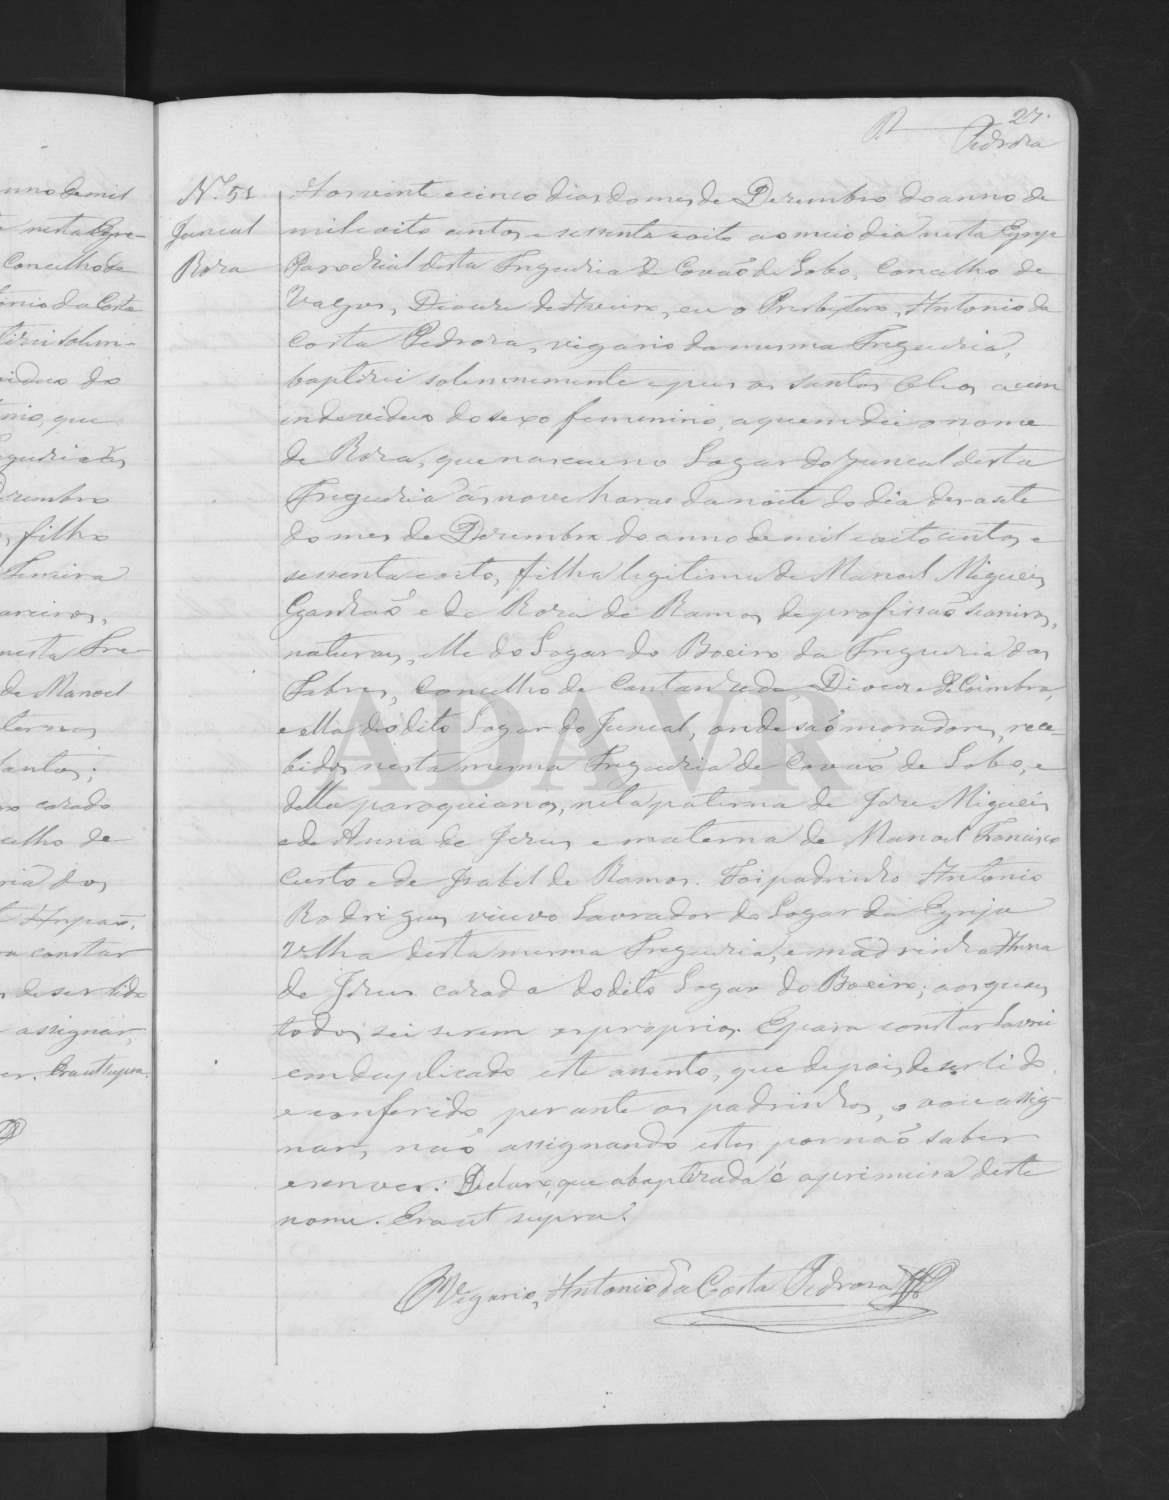 27.
R Pedroza
N.º 51
Juncal
Roza
Aos vinte e cinco dias do mes de Dezembro do anno de
mil oito centos e sessenta e oito ao meio dia nesta Egreja
Parochial desta Freguezia de Covão do Lobo, Concelho de
Vagos, Diocese de Aveiro, eu o Presbytero, Antonio da
Costa Pedroza, vigario da mesma Freguezia,
baptizei solemnemente e puz os santos Oleos a um
individuo do sexo femenino, a quem dei o nome
de Roza, que nasceu no Logar do Juncal desta
Freguezia ás nove horas da noite do dia desasete
do mes de Dezembro do anno de mil e oito centos e
sessenta e oito, filha legitima de Manoel Migueis
Ganhão e de Roza de Ramos, de profissão seareiros,
naturaes, elle do Logar do Boeiro da Freguezia das
Febres, Concelho de Cantanhede, Diocese de Coimbra,
e ella do dito Logar do Juncal, onde são moradores, rece-
bidos nesta mesma Freguezia de Covão do Lobo, e
della paroquianos, neta paterna de Joze Migueis
e de Anna de Jezus e materna de Manoel Francisco
Custo e de Izabel de Ramos. Foi padrinho Antonio
Rodrigues viuvo Lavrador do Logar da Egreja
Velha desta mesma Freguezia, e madrinha Anna
de Jezus cazada do dito Logar do Boeiro; aos quaes
todos sei serem os proprios. E para constar lavrei
em duplicado este assento, que depois de ser lido
e conferido perante os padrinhos, o vou assig-
nar, não assignando estes por não saber
escrever. Declaro, que a baptizada é a primeira deste
nome. Era ut supra.
O Vigario, Antonio da Costa Pedroza
ADAVR
anno de mil
nesta Egre-
Concelho de
Antonio da Costa
tizei solem-
individuo do
que
Freguezia
Dezembro
filho
Ferreira
seareiros,
nesta Fre-
de Manoel
Santos;
cazado
de
constar
de ser lido
assignar,
Era ut supra.